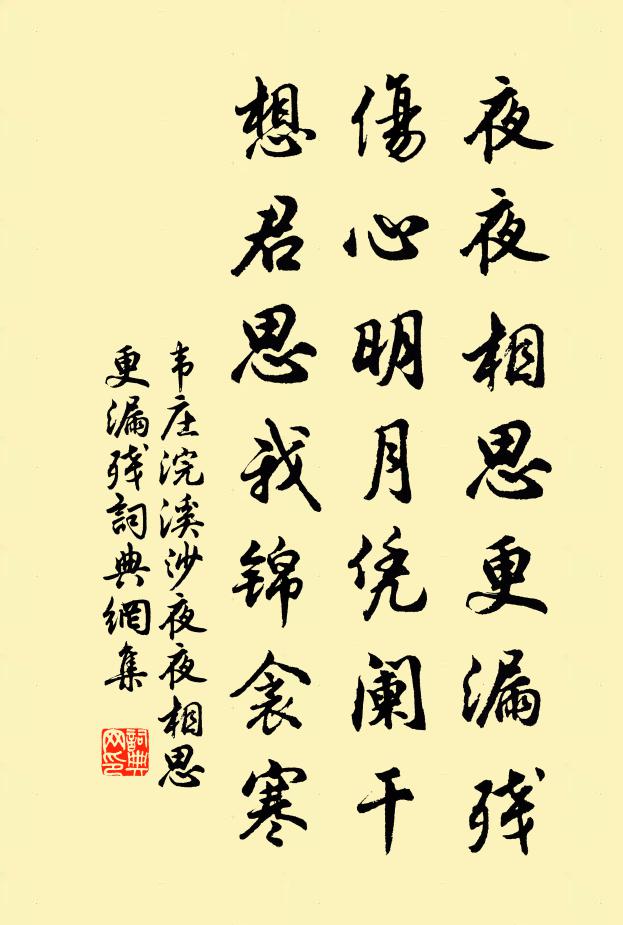 夜夜相思更漏残
傷心明月凭阑干
想君思我锦衾寒
韦庄浣溪沙夜夜相思
更漏残詞典網集
詞典
网印